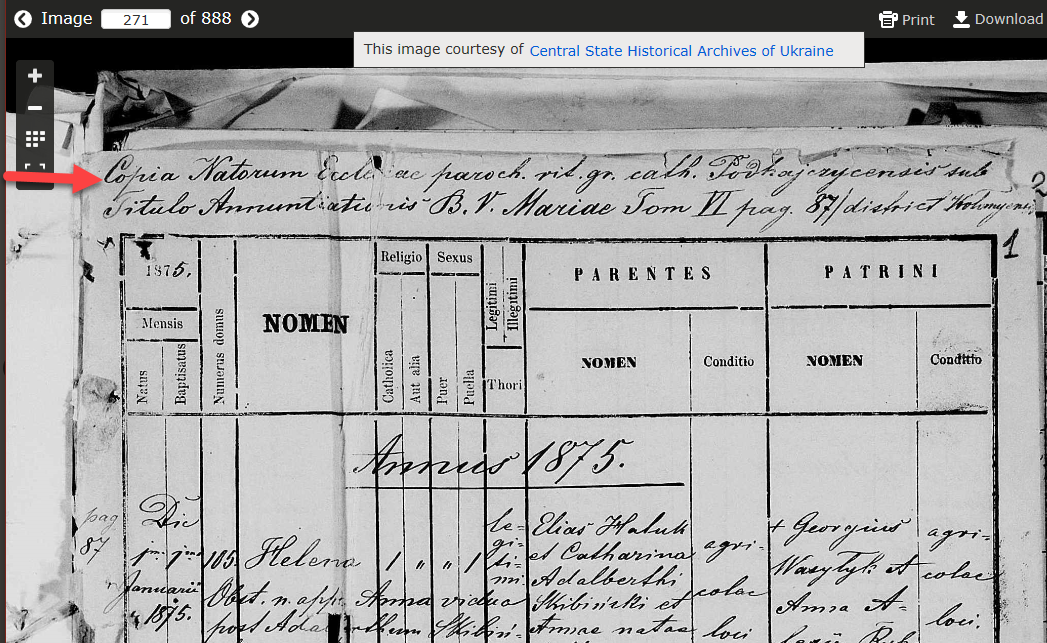 Image 271 of 888
Print Download
This image courtesy of Central State Historical Archives of Ukraine
Copia Natorum Ecclesiae paroch. rit. gr. cath. Podhajczycensis sub
Titulo Annuntiationis B. V. Mariae Tom VI pag. 87/district Kolomyens
1
1875.
Mensis
Natus
Baptisatus
Numerus domus
NOMEN
Religio
Catholica
Aut alia
Sexus
Puer
Puella
Legitimi
Illegitimi
Thori
PARENTES
NOMEN
Conditio
PATRINI
NOMEN
Conditio
Annus 1875.
pag
87
Die
1ma 1ma
Januarii
1875.
105.
Helena
1 " " 1
le-
gi-
ti-
mi
Elias Haluk
et Catharina
Adalberthi
Skibiński et
Annae natae
agri-
colae
loci
+ Georgius
Wasylyk et
Anna A-
agri-
colae
loci.
Obst. n. app. Anna vidua
post Adalberthum Skibiń-